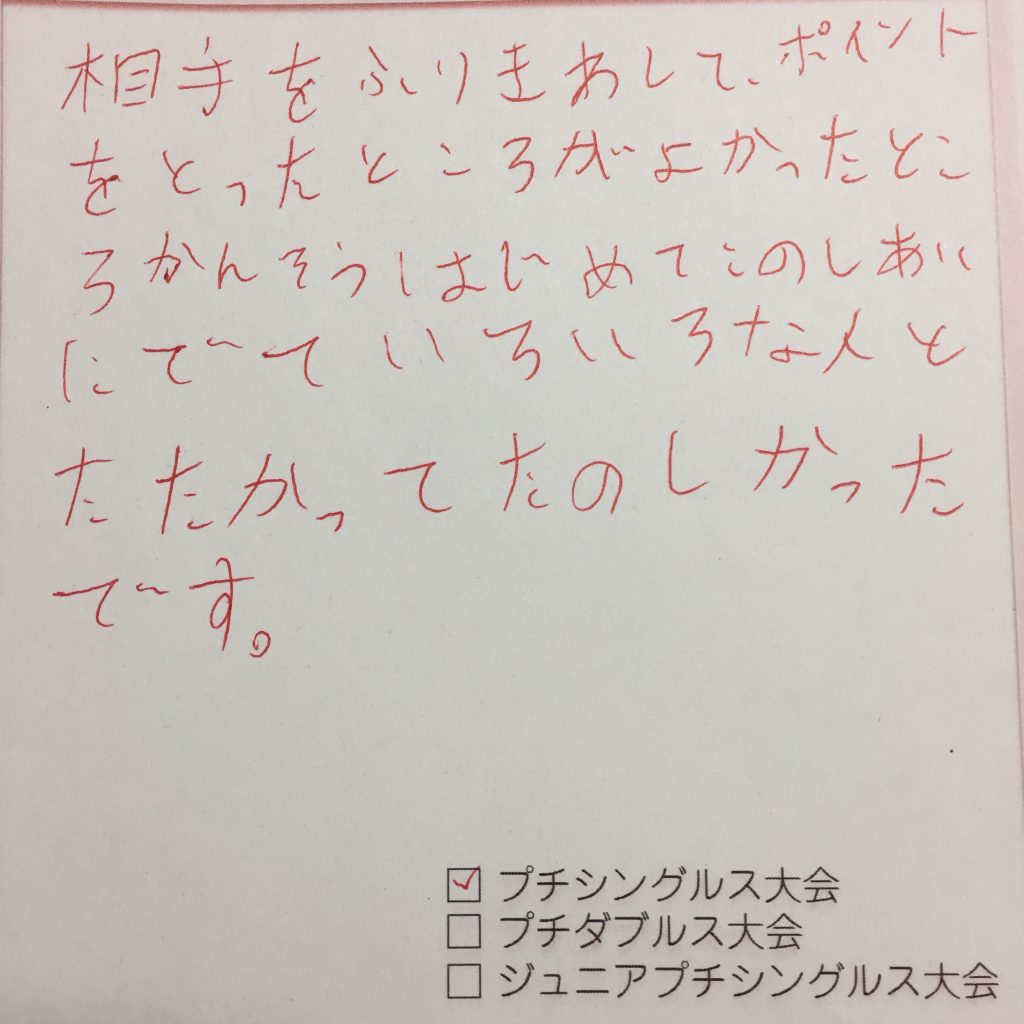 相手をふりまわして、ポイント
をとったところがよかったとこ
ろかんそうはじめてこのしあい
にでていろいろな人と
たたかってたのしかった
です。
☑ プチシングルス大会
☐ プチダブルス大会
☐ ジュニアプチシングルス大会